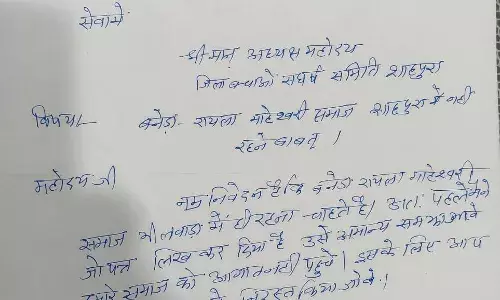 सेवामें
श्रीमान अध्यक्ष महोदय
जिला बचाओं संघर्ष समिति शाहपुरा
विषय:- बनेड़ा रायला माहेश्वरी समाज शाहपुरा में नही
रहने बाबत् ।
महोदय जी
नम्र निवेदन है कि बनेडा रायला माहेश्वरी
समाज भीलवाडा में ही रहना चाहते है। अतः पहले
जो पत्र लिख कर दिया है उसे अमान्य समझा जावे
हमारे समाज को नही पहुचे। इसके लिए आप
निरस्त किया जोवे।